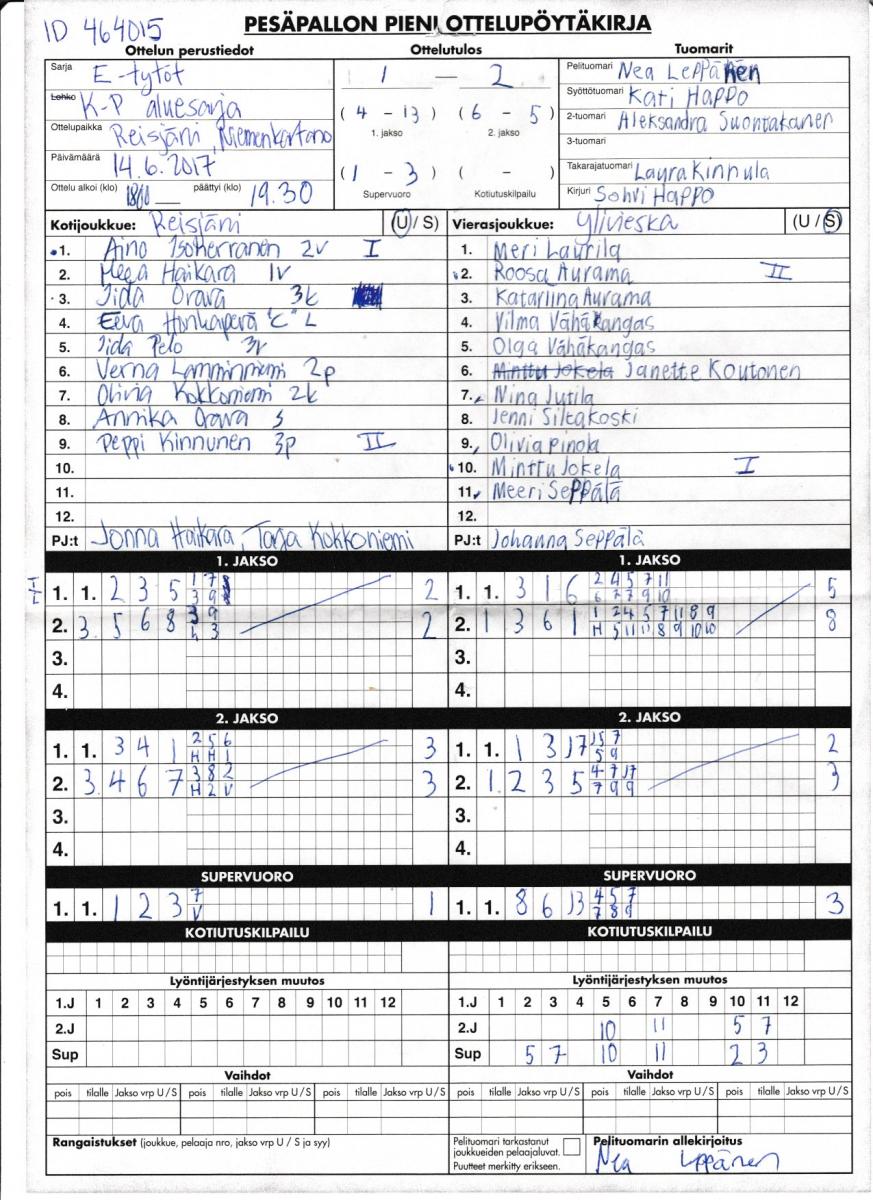 ID 464015
PESÄPALLON PIENI OTTELUPÖYTÄKIRJA
Ottelun perustiedot Ottelutulos Tuomarit
Sarja E-tytöt
Lohko K-P aluesarja
Ottelupaikka Reisjärvi, Niemenkartano
Päivämäärä 14.6.2017
Ottelu alkoi (klo) 1800 päättyi (klo) 19.30
1 — 2
( 4 - 13 ) ( 6 - 5 )
1. jakso 2. jakso
( 1 - 3 ) ( - )
Supervuoro Kotiutuskilpailu
Pelituomari Nea Leppänen
Syöttötuomari Kati Happo
2-tuomari Aleksandra Suontakanen
3-tuomari
Takarajatuomari Laura Kinnula
Kirjuri Sohvi Happo
Kotijoukkue: Reisjärvi (U / S)
1. Aino Isoherranen 2v I
2. Haikara 1v
3. Iida Orava 3k
4. Eeva Honkaperä "C" L
5. Iida Pelo 3v
6. Verna Lamminniemi 2p
7. Olivia Kokkoniemi 2k
8. Annika Orava S
9. Peppi Kinnunen 3p II
10.
11.
12.
PJ:t Jonna Haikara, Tarja Kokkoniemi
Vierasjoukkue: Ylivieska (U / S)
1. Meri Laurila
2. Roosa Aurama II
3. Katariina Aurama
4. Vilma Vähäkangas
5. Olga Vähäkangas
6. Minttu Jokela Janette Koutonen
7. Nina Jutila
8. Jenni Siltakoski
9. Olivia Pinola
10. Minttu Jokela I
11. Meeri Seppälä
12.
PJ:t Johanna Seppälä
1. JAKSO
1. 1. 2 3 5 1 7 2
3 9
2. 3. 5 6 8 9 2
3
3.
4.
1. JAKSO
1. 1. 3 1 6 2 4 5 7 11 5
6 7 7 9 10
2. 1 3 6 1 1 2 4 5 7 11 8 9 8
H 5 11 11 8 9 10 10
3.
4.
2. JAKSO
1. 1. 3 4 1 2 5 6 3
H H 1
2. 3. 4 6 7 3 8 2 3
H 2 V
3.
4.
2. JAKSO
1. 1. 1 3 7 2
5 9
2. 1. 2 3 5 4 7 3
7 9 9
3.
4.
SUPERVUORO
1. 1. 1 2 3 7 1
V
SUPERVUORO
1. 1. 8 6 4 5 7 3
7 8 9
KOTIUTUSKILPAILU
Lyöntijärjestyksen muutos
1.J 1 2 3 4 5 6 7 8 9 10 11 12
2.J
Sup
KOTIUTUSKILPAILU
Lyöntijärjestyksen muutos
1.J 1 2 3 4 5 6 7 8 9 10 11 12
2.J 10 11 5 7
Sup 5 7 10 11 2 3
Vaihdot
pois tilalle Jakso vrp U / S pois tilalle Jakso vrp U / S pois tilalle Jakso vrp U / S
Vaihdot
pois tilalle Jakso vrp U / S pois tilalle Jakso vrp U / S pois tilalle Jakso vrp U / S
Rangaistukset (joukkue, pelaaja nro, jakso vrp U / S ja syy)
Pelituomari tarkastanut
joukkueiden pelaajaluvat.
Puutteet merkitty erikseen.
Pelituomarin allekirjoitus
Nea Leppänen